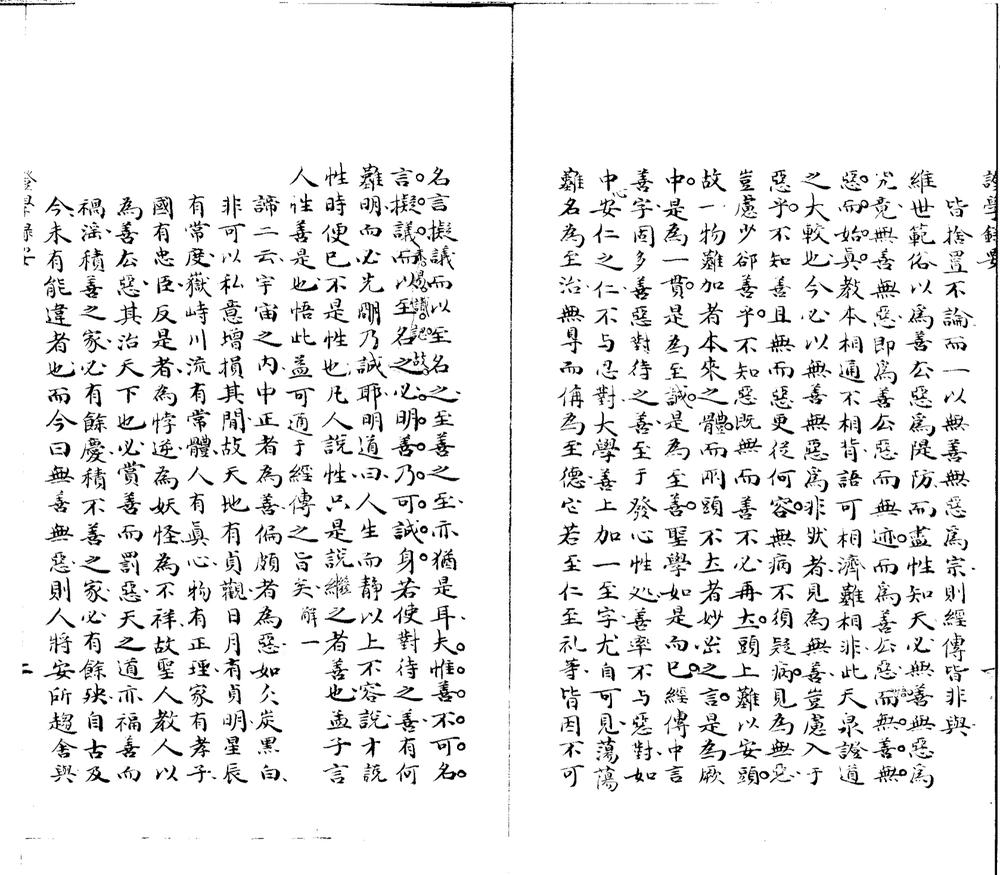 證學録要
皆捨置不論而一以無善無惡爲宗則經傳皆非與
維世範俗以爲善去惡爲隄防而盡性知天必無善無惡爲
究竟無善無惡即爲善去惡而無迹而爲善去惡而無善無
惡而始眞教本相通不相背語可相濟難相非此天泉證道
之大較也今必以無善無惡爲非狀者見為無善豈慮入于
惡乎不知善且無而惡更從何容無病不須疑病見為無惡
豈慮少卻善乎不知惡既無而善不必再立頭上難以安頭
故一物難加者本來之體而兩頭不立者妙密之言是為厥
中是為一貫是為至誠是為至善聖學如是而已經傳中言
善字固多善惡對待之善至于發心性処善率不与惡對如
中心安仁之仁不与忍對大學善上加一至字尤自可見蕩蕩
難名為至治無㝵而偁為至德它若至仁至礼等皆因不可
名言擬議而以至名之至善之至亦猶是耳夫惟善不可名
言擬議而以至名之必明善乃可誠身若使對待之善有何
難明而必先明乃誠耶明道曰人生而静以上不容說才說
性時便已不是性也凡人說性只是說繼之者善也孟子言
人性善是也悟此益可通于經傳之旨矣解一
諦二云宇宙之内中正者為善偏頗者為惡如仌炭黑白
非可以私意增損其間故天地有貞觀日月有貞明星辰
有常度嶽峙川流有常體人有眞心物有正理家有孝子
國有忠臣反是者為悖逆為妖怪為不祥故聖人教人以
為善去惡其治天下也必賞善而罰惡天之道亦福善而
禍滛積善之家必有餘慶積不善之家必有餘殃自古及
今未有能違者也而今曰無善無惡則人將安所趨舍與
證學録要